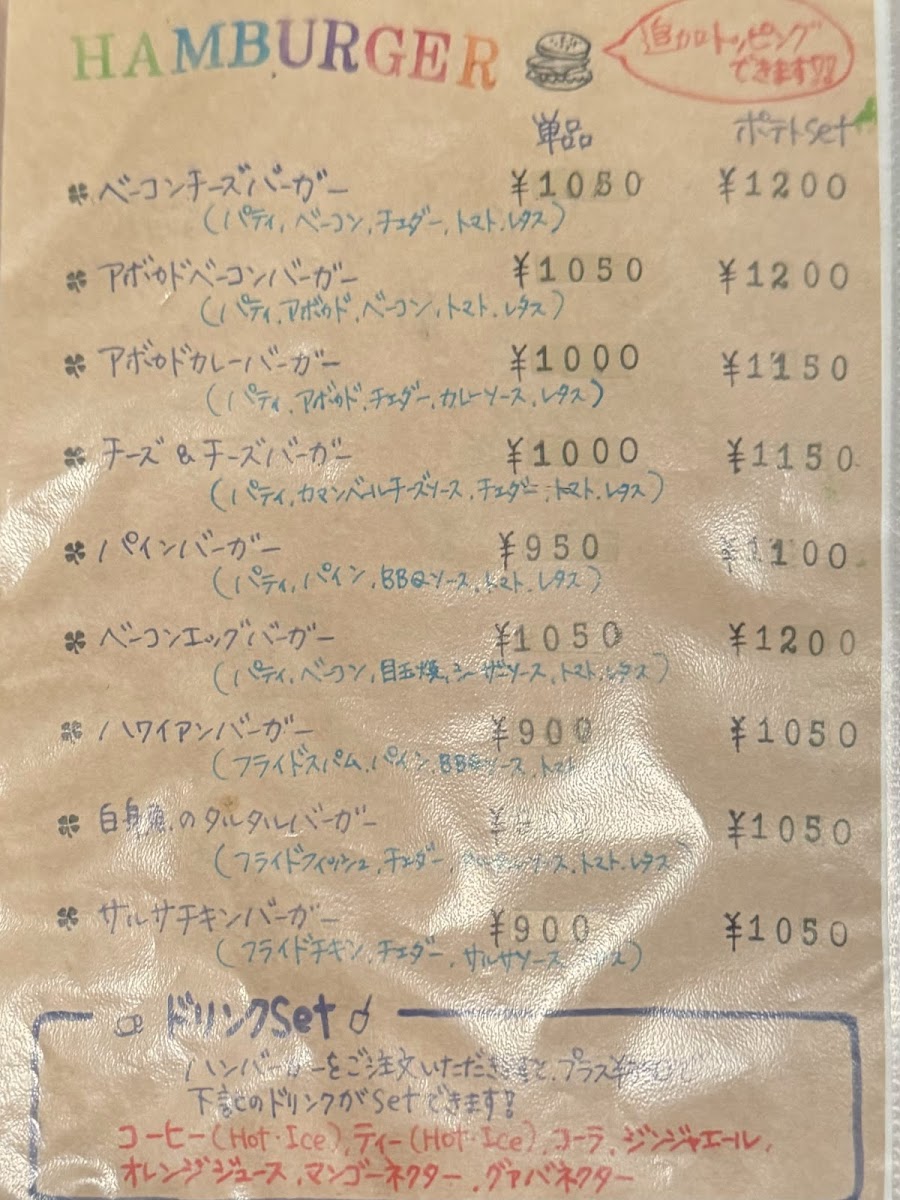 HAMBURGER
追加トッピング
できます!!
単品 ポテトset
ベーコンチーズバーガー ¥1050 ¥1200
(パティ,ベーコン,チェダー,トマト,レタス)
アボカドベーコンバーガー ¥1050 ¥1200
(パティ,アボカド,ベーコン,トマト,レタス)
アボカドカレーバーガー ¥1000 ¥1150
(パティ,アボカド,チェダー,カレーソース,レタス)
チーズ&チーズバーガー ¥1000 ¥1150
(パティ,カマンベールチーズソース,チェダー,トマト,レタス)
パインバーガー ¥950 ¥1100
(パティ,パイン,BBQソース,トマト,レタス)
ベーコンエッグバーガー ¥1050 ¥1200
(パティ,ベーコン,目玉焼,シーザーソース,トマト,レタス)
ハワイアンバーガー ¥900 ¥1050
(フライドスパム,パイン,BBQソース,トマト
白身魚のタルタルバーガー ¥1050
(フライドフィッシュ,チェダー,ソース,トマト,レタス)
サルサチキンバーガー ¥900 ¥1050
(フライドチキン,チェダー,サルサソース,)
ドリンクset
ハンバーガーをご注文いただき、プラス
下記のドリンクがsetできます!
コーヒー(Hot・Ice),ティー(Hot・Ice),コーラ,ジンジャエール,
オレンジジュース,マンゴーネクター,グァバネクター